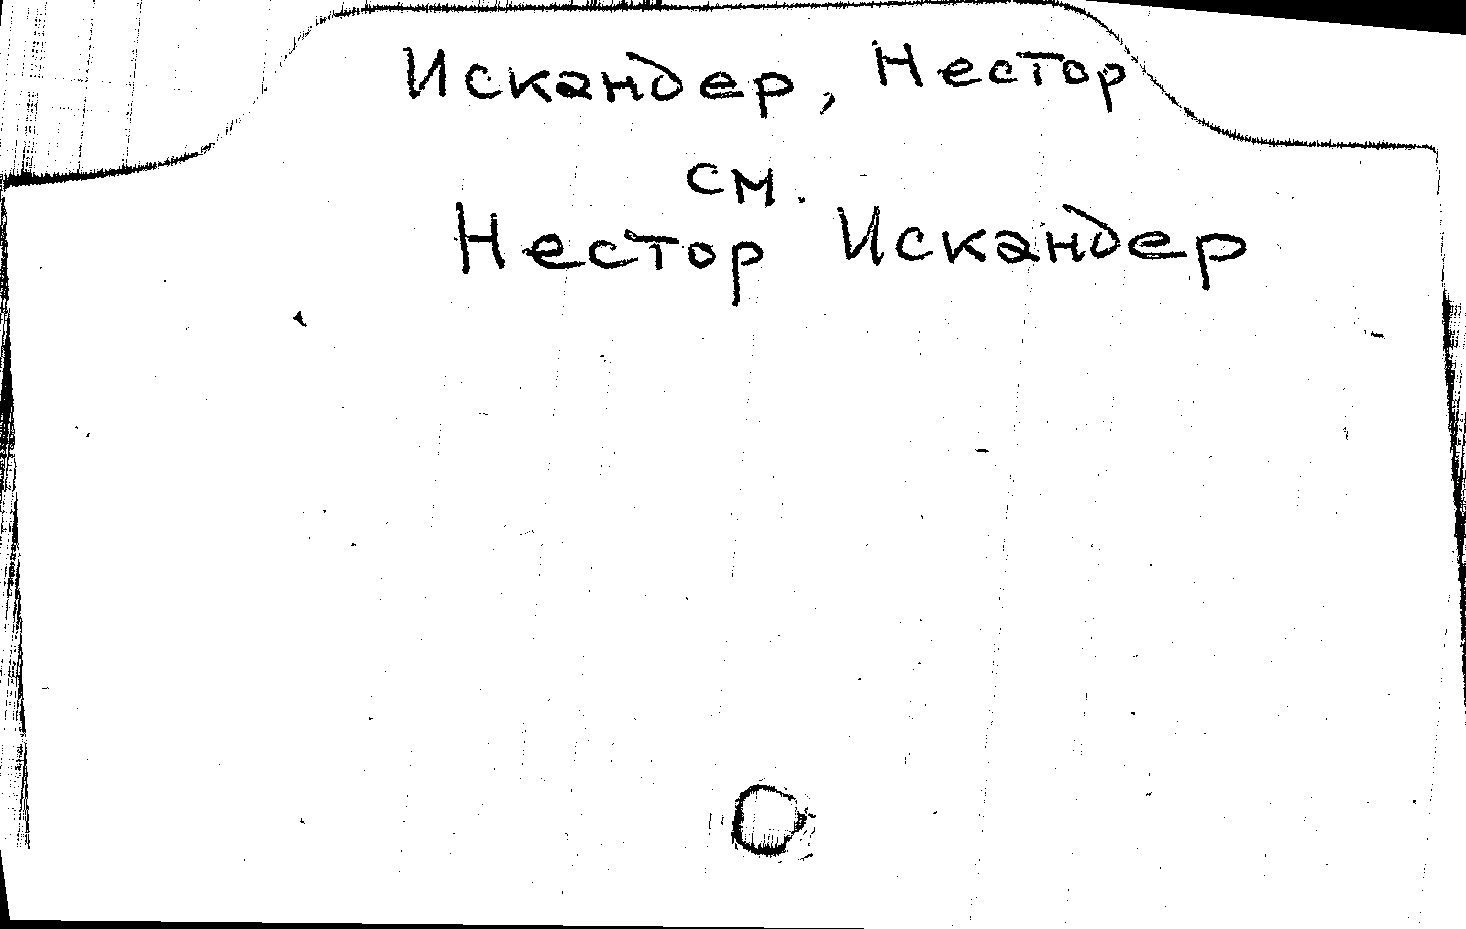 Искандер, Нестор
см.
Нестор Искандер